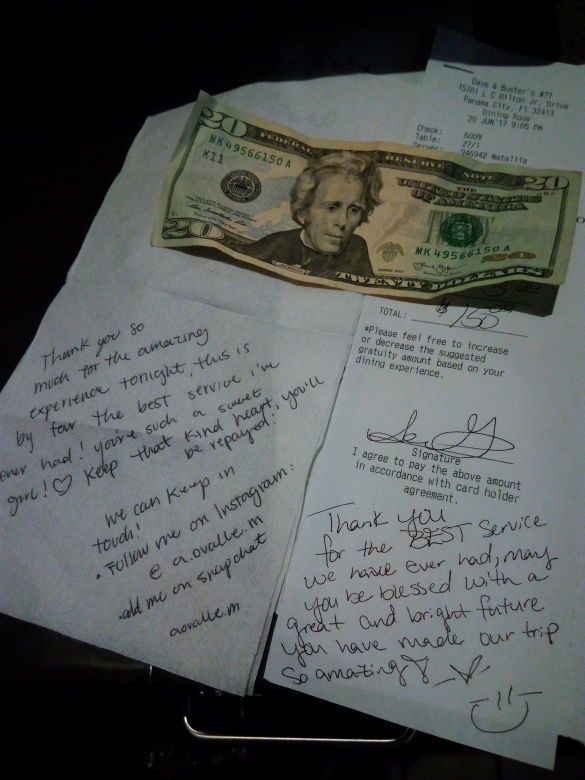 Dave & Buster's #77
15701 L C Hilton Jr. Drive
Panama City, Fl 32413
Dining Room
20 JUN'17 9:05 PM
Check: 6009
Table: 27/1
Server: 946942 Natalila
20 FEDERAL RESERVE NOTE 20
MK 49566150 A
K11
THE
UNITED STATES
OF AMERICA
MK 49566150 A
20 TWENTY DOLLARS
TOTAL: $ 150
*Please feel free to increase
or decrease the suggested
gratuity amount based on your
dining experience.
Signature
I agree to pay the above amount
in accordance with card holder
agreement.
Thank you
for the BEST service
we have ever had, may
you be blessed with a
great and bright future
you have made our trip
so amazing
Thank you so
much for the amazing
experience tonight, this is
by far the best service i've
ever had! you're such a sweet
girl! ♡ Keep that kind heart, you'll
be repayed!
we can keep in
touch!
• Follow me on Instagram:
@ a.ovalle.m
•add me on snapchat
aovalle.m